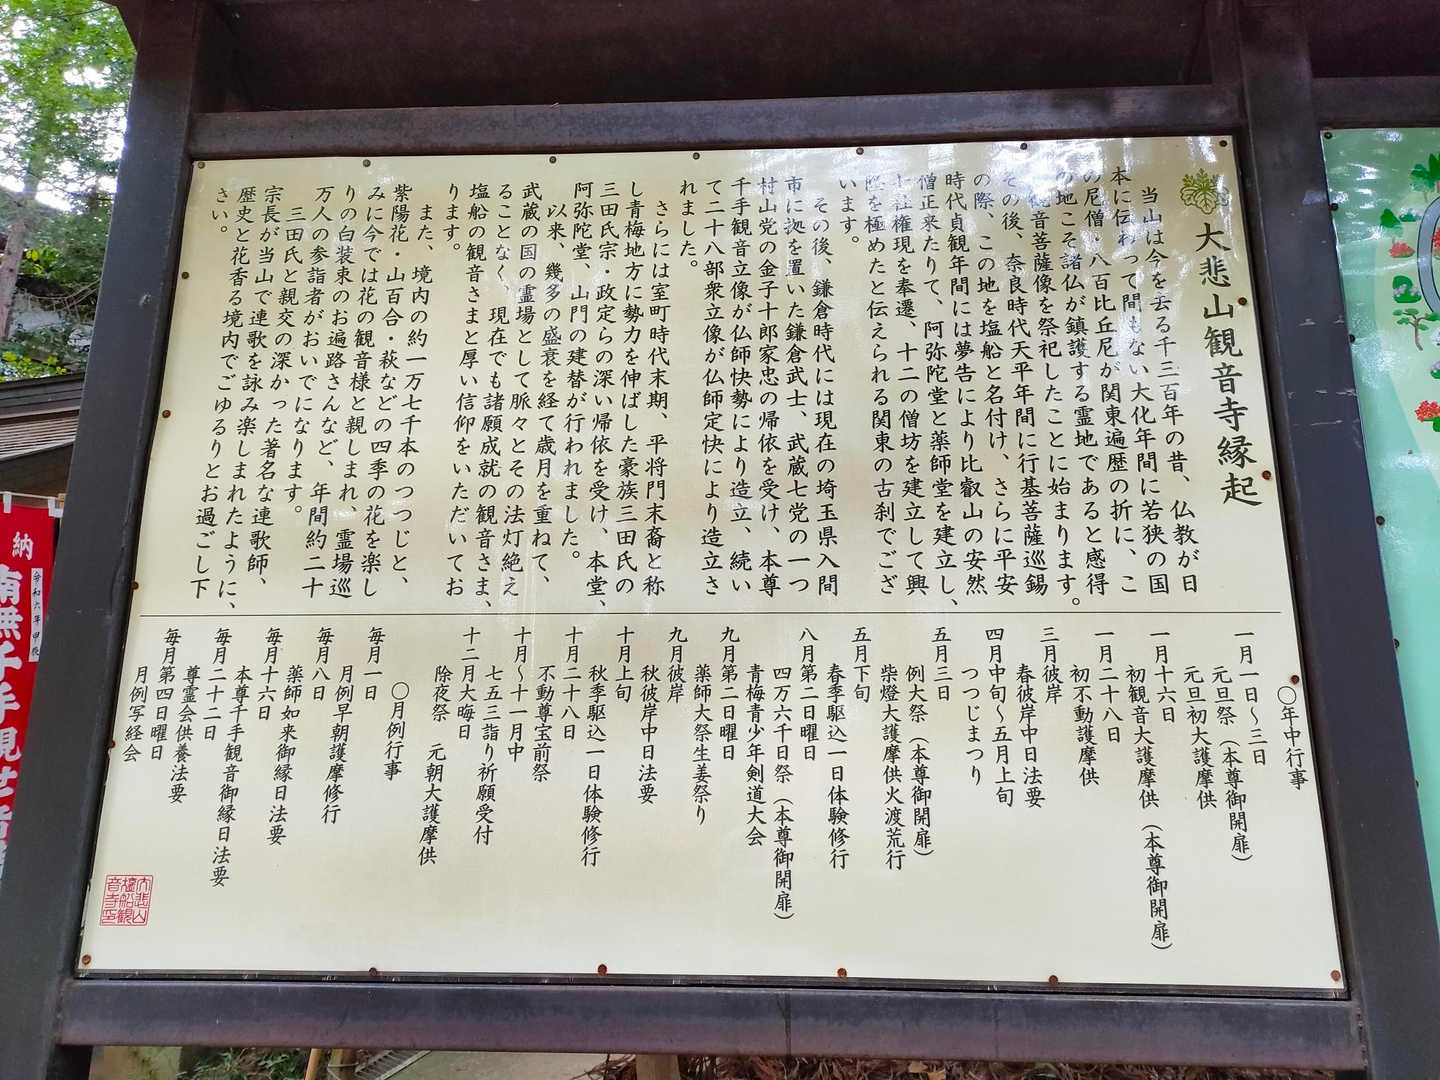 大悲山観音寺縁起
当山は今を去る千三百年の昔、仏教が日
本に伝わって間もない大化年間に若狭の国
の尼僧・八百比丘尼が関東遍歴の折に、こ
の地こそ諸仏が鎮護する霊地であると感得
観音菩薩像を祭祀したことに始まります。
その後、奈良時代天平年間に行基菩薩巡錫
の際、この地を塩船と名付け、さらに平安
時代貞観年間には夢告により比叡山の安然
僧正来たりて、阿弥陀堂と薬師堂を建立し、
社権現を奉遷、十二の僧坊を建立して興
隆を極めたと伝えられる関東の古刹でござ
います。
その後、鎌倉時代には現在の埼玉県入間
市に拠を置いた鎌倉武士、武蔵七党の一つ
村山党の金子十郎家忠の帰依を受け、本尊
千手観音立像が仏師快勢により造立、続い
て二十八部衆立像が仏師定快により造立さ
れました。
さらには室町時代末期、平将門末裔と称
し青梅地方に勢力を伸ばした豪族三田氏の
三田氏宗・政定らの深い帰依を受け、本堂、
阿弥陀堂、山門の建替が行われました。
以来、幾多の盛衰を経て歳月を重ねて、
武蔵の国の霊場として脈々とその法灯絶え
ることなく、現在でも諸願成就の観音さま、
塩船の観音さまと厚い信仰をいただいてお
ります。
また、境内の約一万七千本のつつじと、
紫陽花・山百合・萩などの四季の花を楽し
みに今では花の観音様と親しまれ、霊場巡
りの白装束のお遍路さんなど、年間約二十
万人の参詣者がおいでになります。
三田氏と親交の深かった著名な連歌師、
宗長が当山で連歌を詠み楽しまれたように、
歴史と花香る境内でごゆるりとお過ごし下
さい。
〇年中行事
一月一日～三日
元旦祭（本尊御開扉）
元旦初大護摩供
一月十六日
初観音大護摩供（本尊御開扉）
一月二十八日
初不動護摩供
三月彼岸
春彼岸中日法要
四月中旬～五月上旬
つつじまつり
五月三日
例大祭（本尊御開扉）
柴燈大護摩供火渡荒行
五月下旬
春季駆込一日体験修行
八月第二日曜日
四万六千日祭（本尊御開扉）
青梅青少年剣道大会
九月第二日曜日
薬師大祭生姜祭り
九月彼岸
秋彼岸中日法要
十月上旬
秋季駆込一日体験修行
十月二十八日
不動尊宝前祭
十月～十一月中
七五三詣り祈願受付
十二月大晦日
除夜祭　元朝大護摩供
〇月例行事
毎月一日
月例早朝護摩修行
毎月八日
薬師如来御縁日法要
毎月十六日
本尊千手観音御縁日法要
毎月二十二日
尊霊会供養法要
毎月第四日曜日
月例写経会
大悲山
塩船観
音寺印
納
南無千手観世音
令和六年甲辰